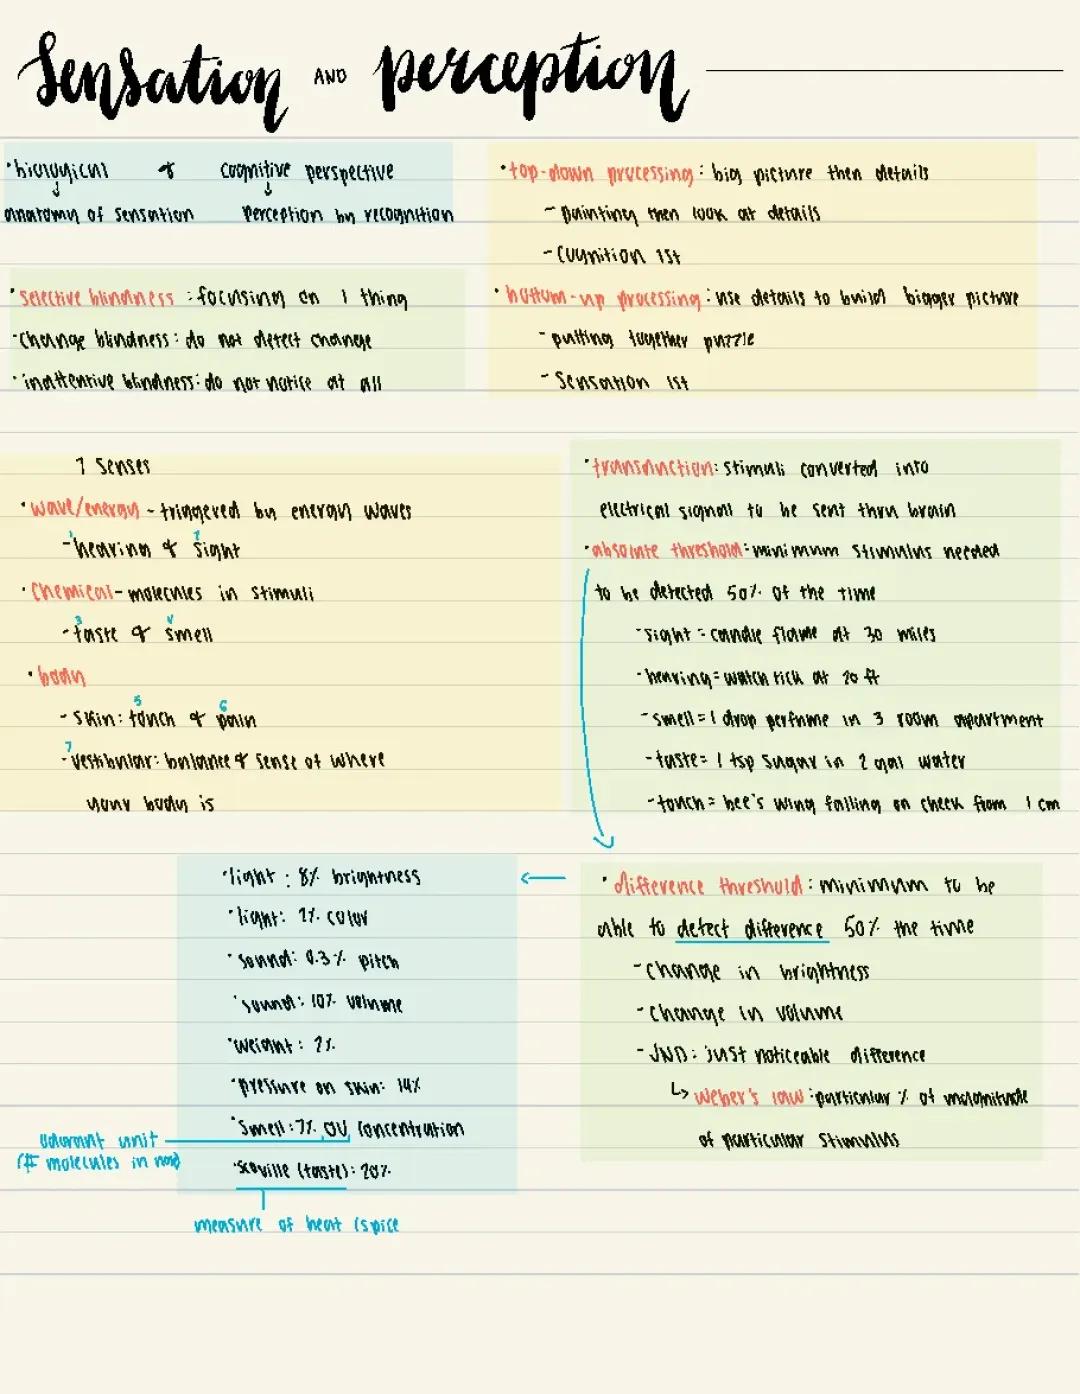 Sensation AND perception
• biological & cognitive perspective
↓ ↓
anatomy of sensation perception by recognition
• selective blindness : focusing on 1 thing
• Change blindness : do not detect change
• inattentive blindness : do not notice at all
• top-down processing : big picture then details
- painting then look at details
- Cognition 1st
• bottom-up processing : use details to build bigger picture
- putting together puzzle
- Sensation 1st
7 Senses
• wave/energy - triggered by energy waves
1 2
- hearing & sight
• Chemical - molecules in stimuli
3 4
- taste & smell
• body
5 6
- Skin : touch & pain
7
- vestibular : balance & sense of where
your body is
• transduction : stimuli converted into
electrical signal to be sent thru brain
• absolute threshold : minimum stimulus needed
to be detected 50% of the time
- sight = candle flame at 30 miles
- hearing = watch tick at 20 ft
- smell = 1 drop perfume in 3 room apartment
- taste = 1 tsp sugar in 2 gal water
- touch = bee's wing falling on cheek from 1 cm
• difference threshold : minimum to be
able to detect difference 50% the time
- change in brightness
- change in volume
- JND : just noticeable difference
↳ weber's law : particular % of magnitude
of particular stimulus
• light : 8% brightness
• light : 2% color
• sound : 0.3% pitch
• sound : 10% volume
• weight : 2%
• pressure on skin : 14%
• smell : 7% OU concentration
• scoville (taste) : 20%
odorant unit
(# molecules in
measure of heat (spice